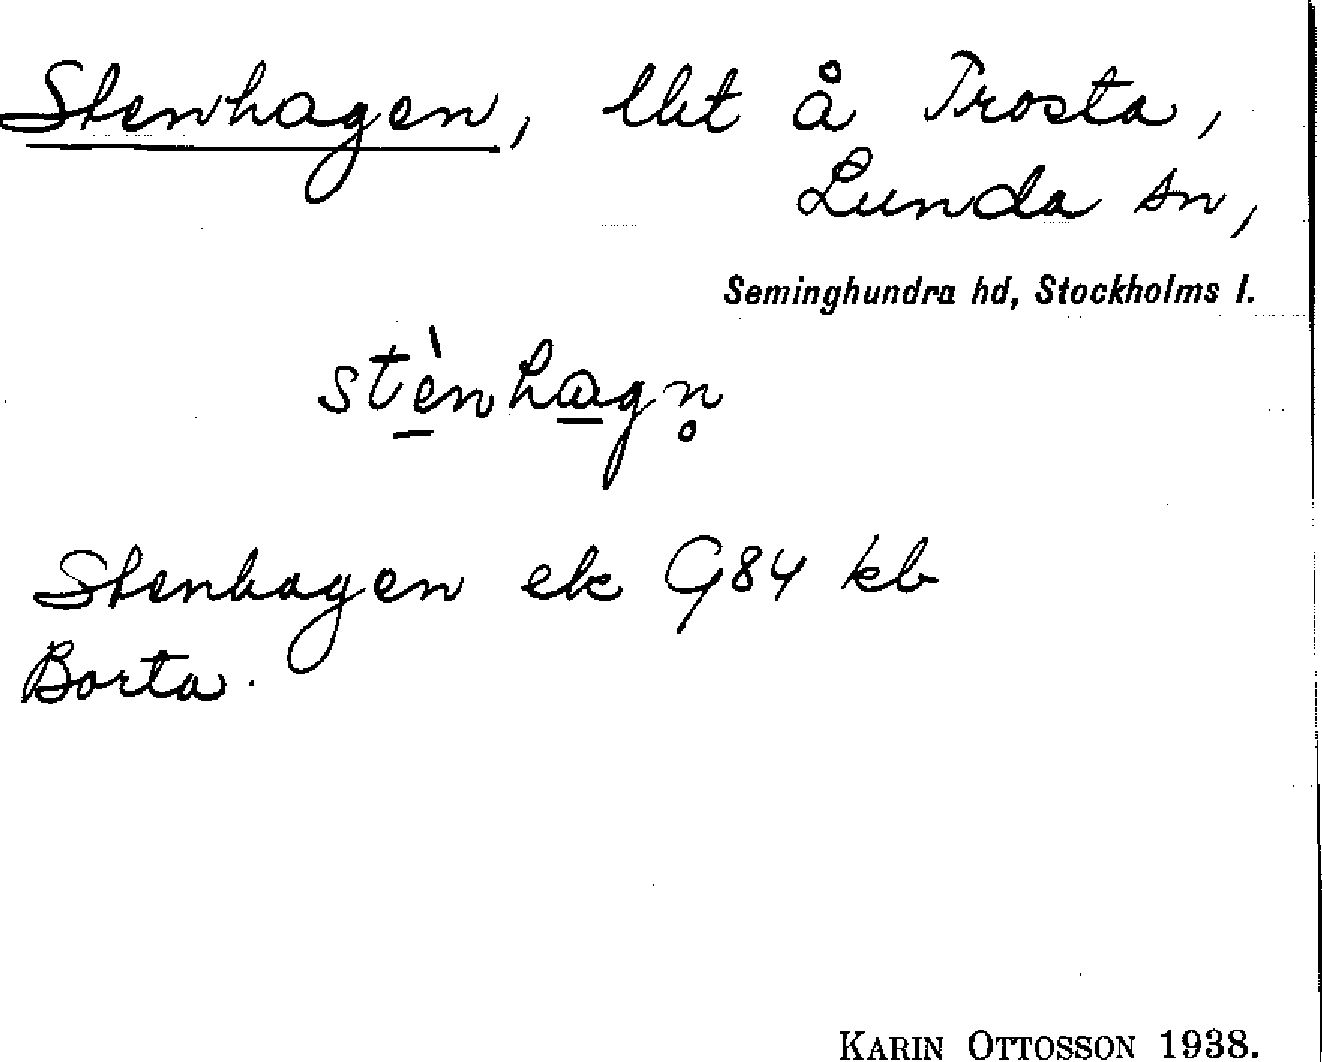 Stenhagen, lht å Trosta,
Lunda sn,
Seminghundra hd, Stockholms l.
stènhagn̥
Stenhagen ek G84 kb
Borta.
KARIN OTTOSSON 1938.